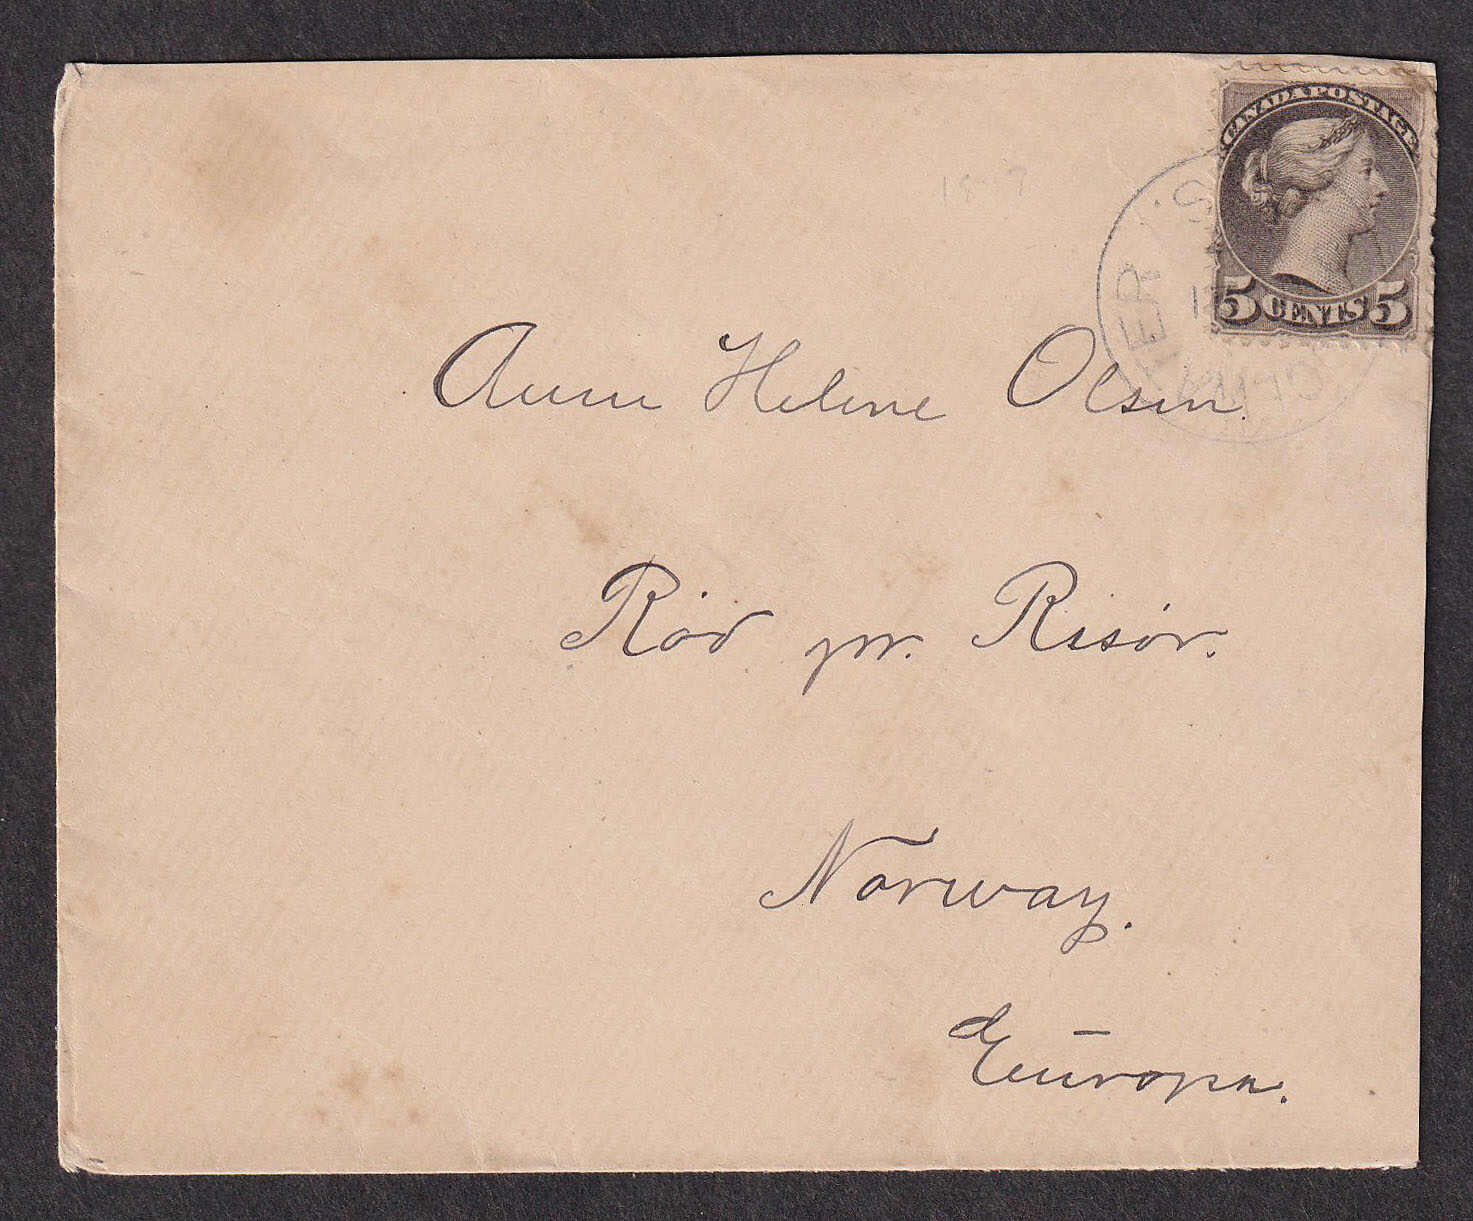 CANADA POSTAGE
5 CENTS 5
Anne Helene Olsen.
Röd pr. Risör.
Norway.
Europa.